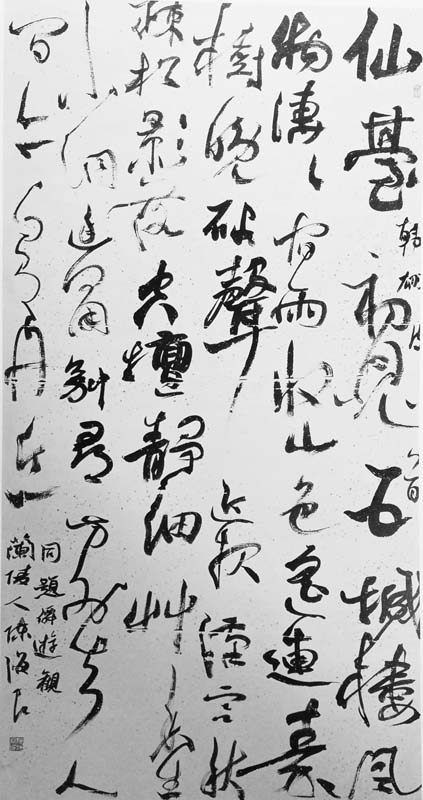 仙臺初見五城樓風
物淒々宿雨收山色遙連秦
樹晚砧聲近報漢宮秋
疎松影落空壇靜細艸香生
小洞幽何用別尋方外去人
間亦自有丹丘
韓翃詩
同題僊遊觀
蘭陵人陳海良